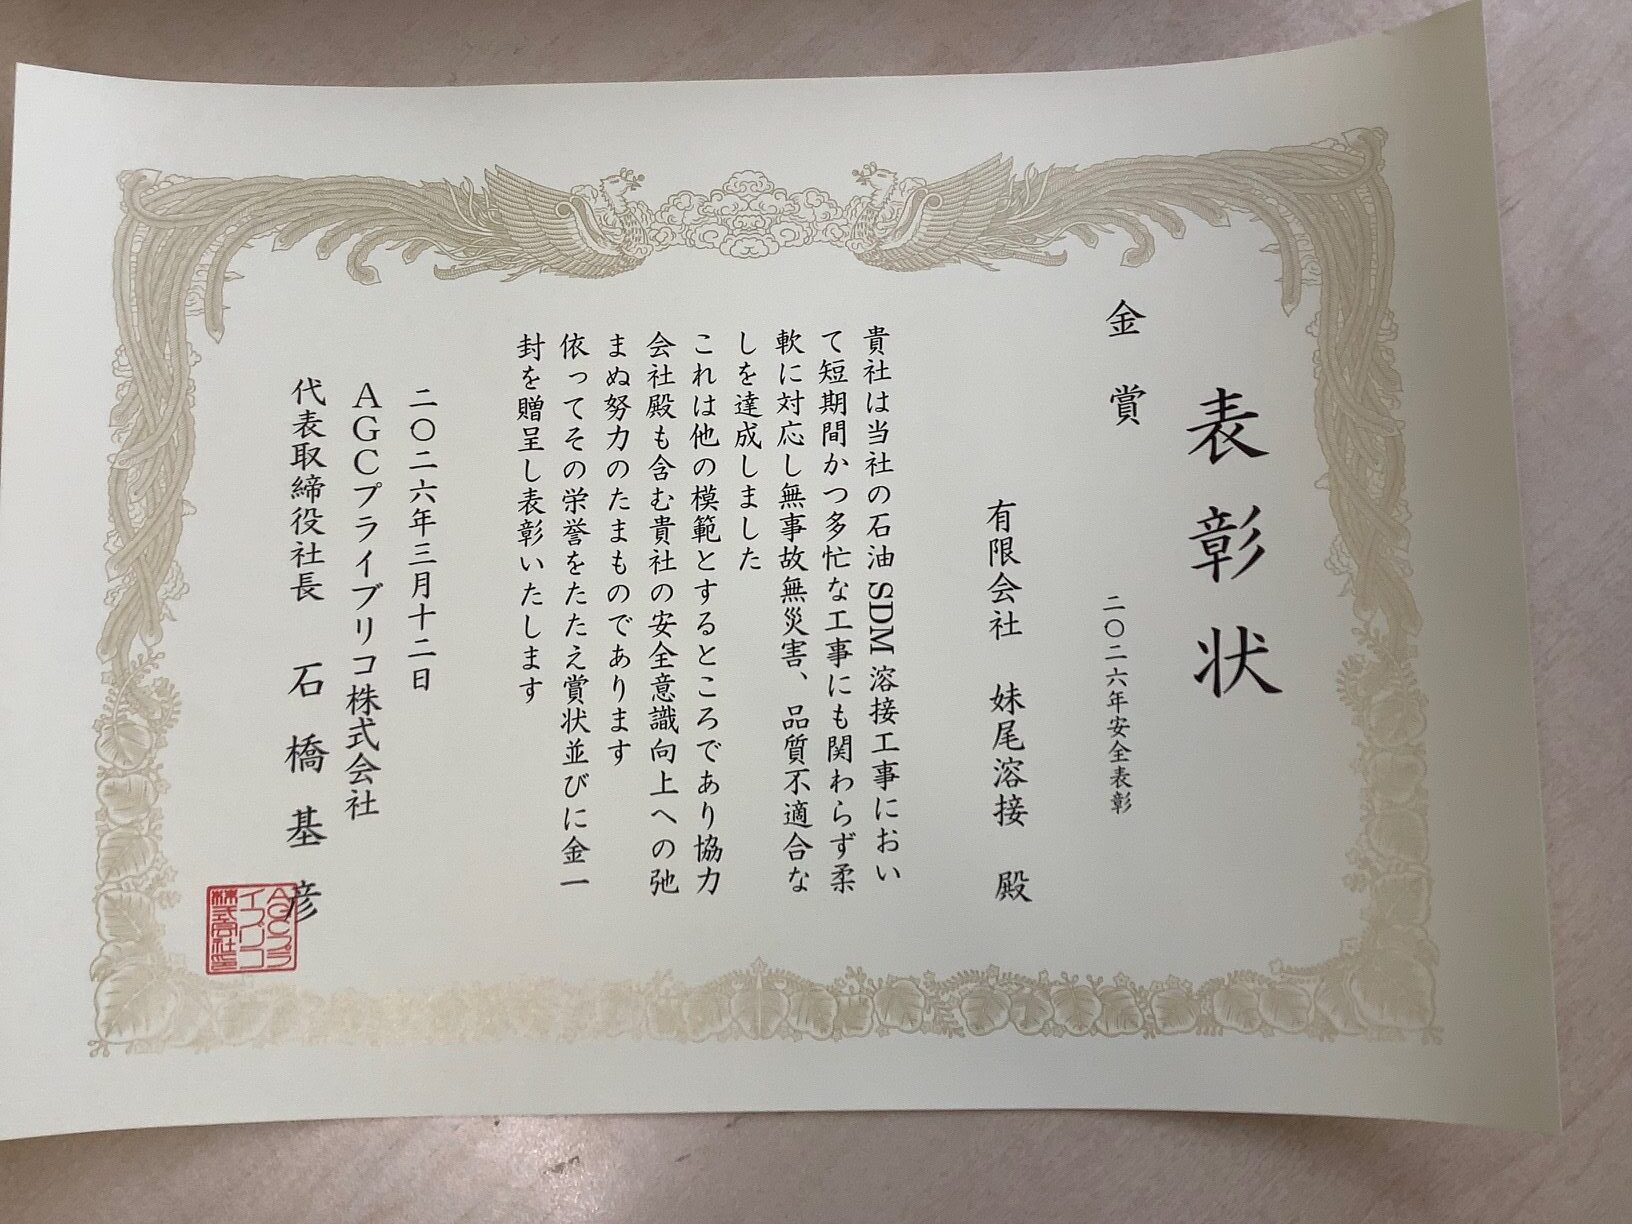 表彰状
金賞
二〇二六年安全表彰
有限会社 妹尾溶接 殿
貴社は当社の石油SDM溶接工事におい
て短期間かつ多忙な工事にも関わらず柔
軟に対応し無事故無災害、品質不適合な
しを達成しました
これは他の模範とするところであり協力
会社殿も含む貴社の安全意識向上への弛
まぬ努力のたまものであります
依ってその栄誉をたたえ賞状並びに金一
封を贈呈し表彰いたします
二〇二六年三月十二日
AGCプライブリコ株式会社
代表取締役社長 石橋基彦
AGCプラ
イブリコ
株式会社印